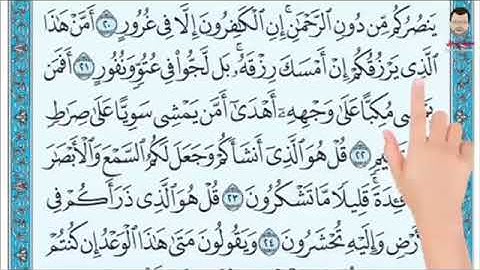 يَنصُرُكُم مِّن دُونِ ٱلرَّحْمَٰنِ ۚ إِنِ ٱلْكَٰفِرُونَ إِلَّا فِى غُرُورٍ ٢٠ أَمَّنْ هَٰذَا
ٱلَّذِى يَرْزُقُكُمْ إِنْ أَمْسَكَ رِزْقَهُۥ ۚ بَل لَّجُّوا۟ فِى عُتُوٍّ وَنُفُورٍ ٢١ أَفَمَن
مُكِبًّا عَلَىٰ وَجْهِهِۦٓ أَهْدَىٰٓ أَمَّن يَمْشِى سَوِيًّا عَلَىٰ صِرَٰطٍ
٢٢ قُلْ هُوَ ٱلَّذِىٓ أَنشَأَكُمْ وَجَعَلَ لَكُمُ ٱلسَّمْعَ وَٱلْأَبْصَٰرَ
قَلِيلًا مَّا تَشْكُرُونَ ٢٣ قُلْ هُوَ ٱلَّذِى ذَرَأَكُمْ فِى
وَإِلَيْهِ تُحْشَرُونَ ٢٤ وَيَقُولُونَ مَتَىٰ هَٰذَا ٱلْوَعْدُ إِن كُنتُمْ